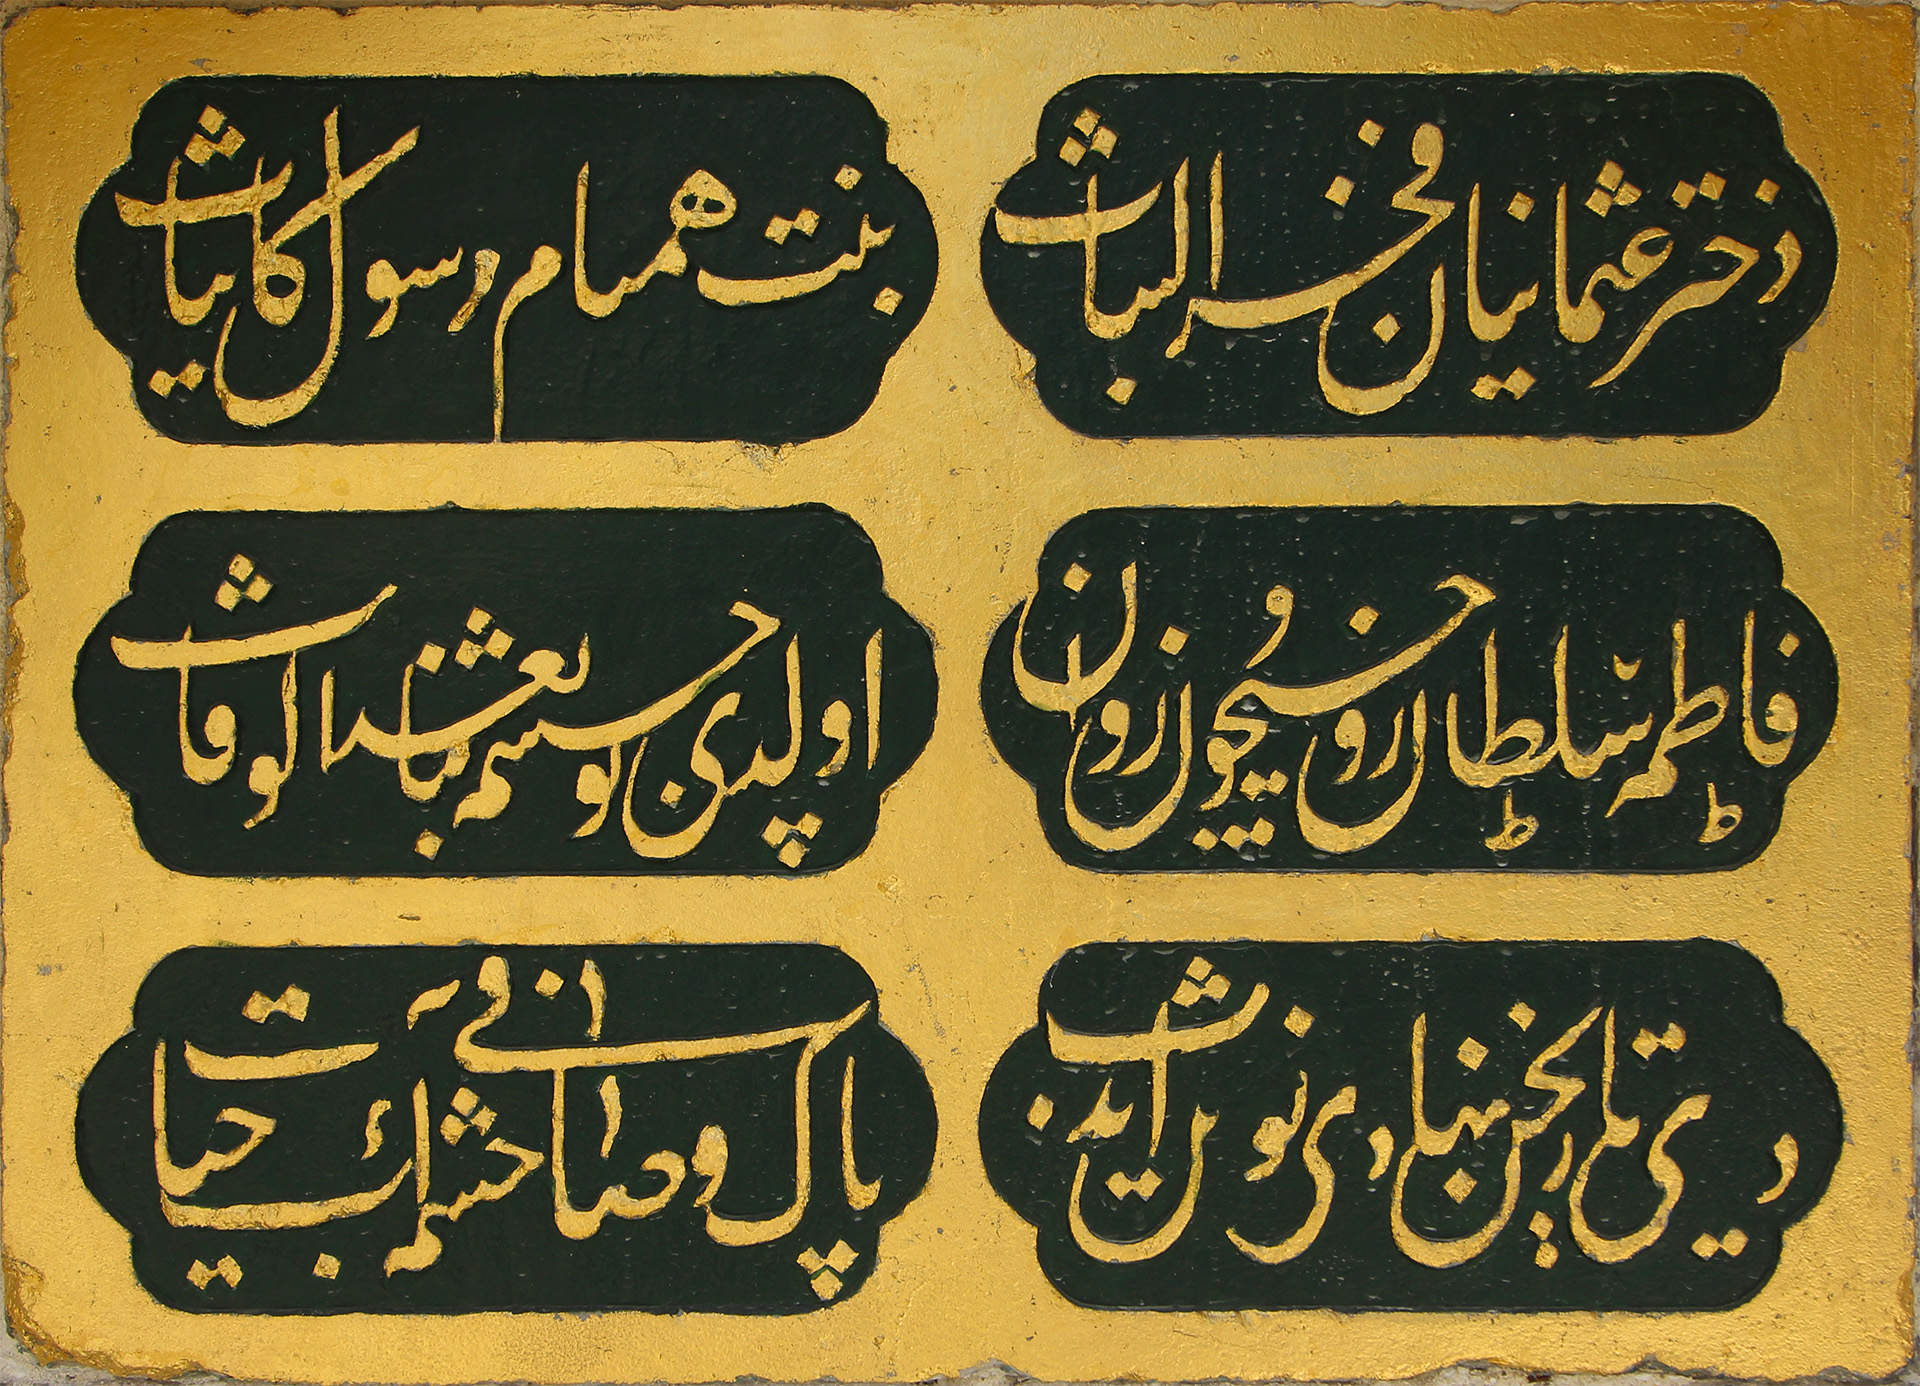 دختر عثمانیان فخر البنات
بنت همنام رسول کاینات
فاطمه سلطان روحیچون روان
اولدی بو چشمه بنا بعد الوفات
دیدی تاریخن نهادی نوش ایدن
پاک و صافی چشمهٔ آب حیات